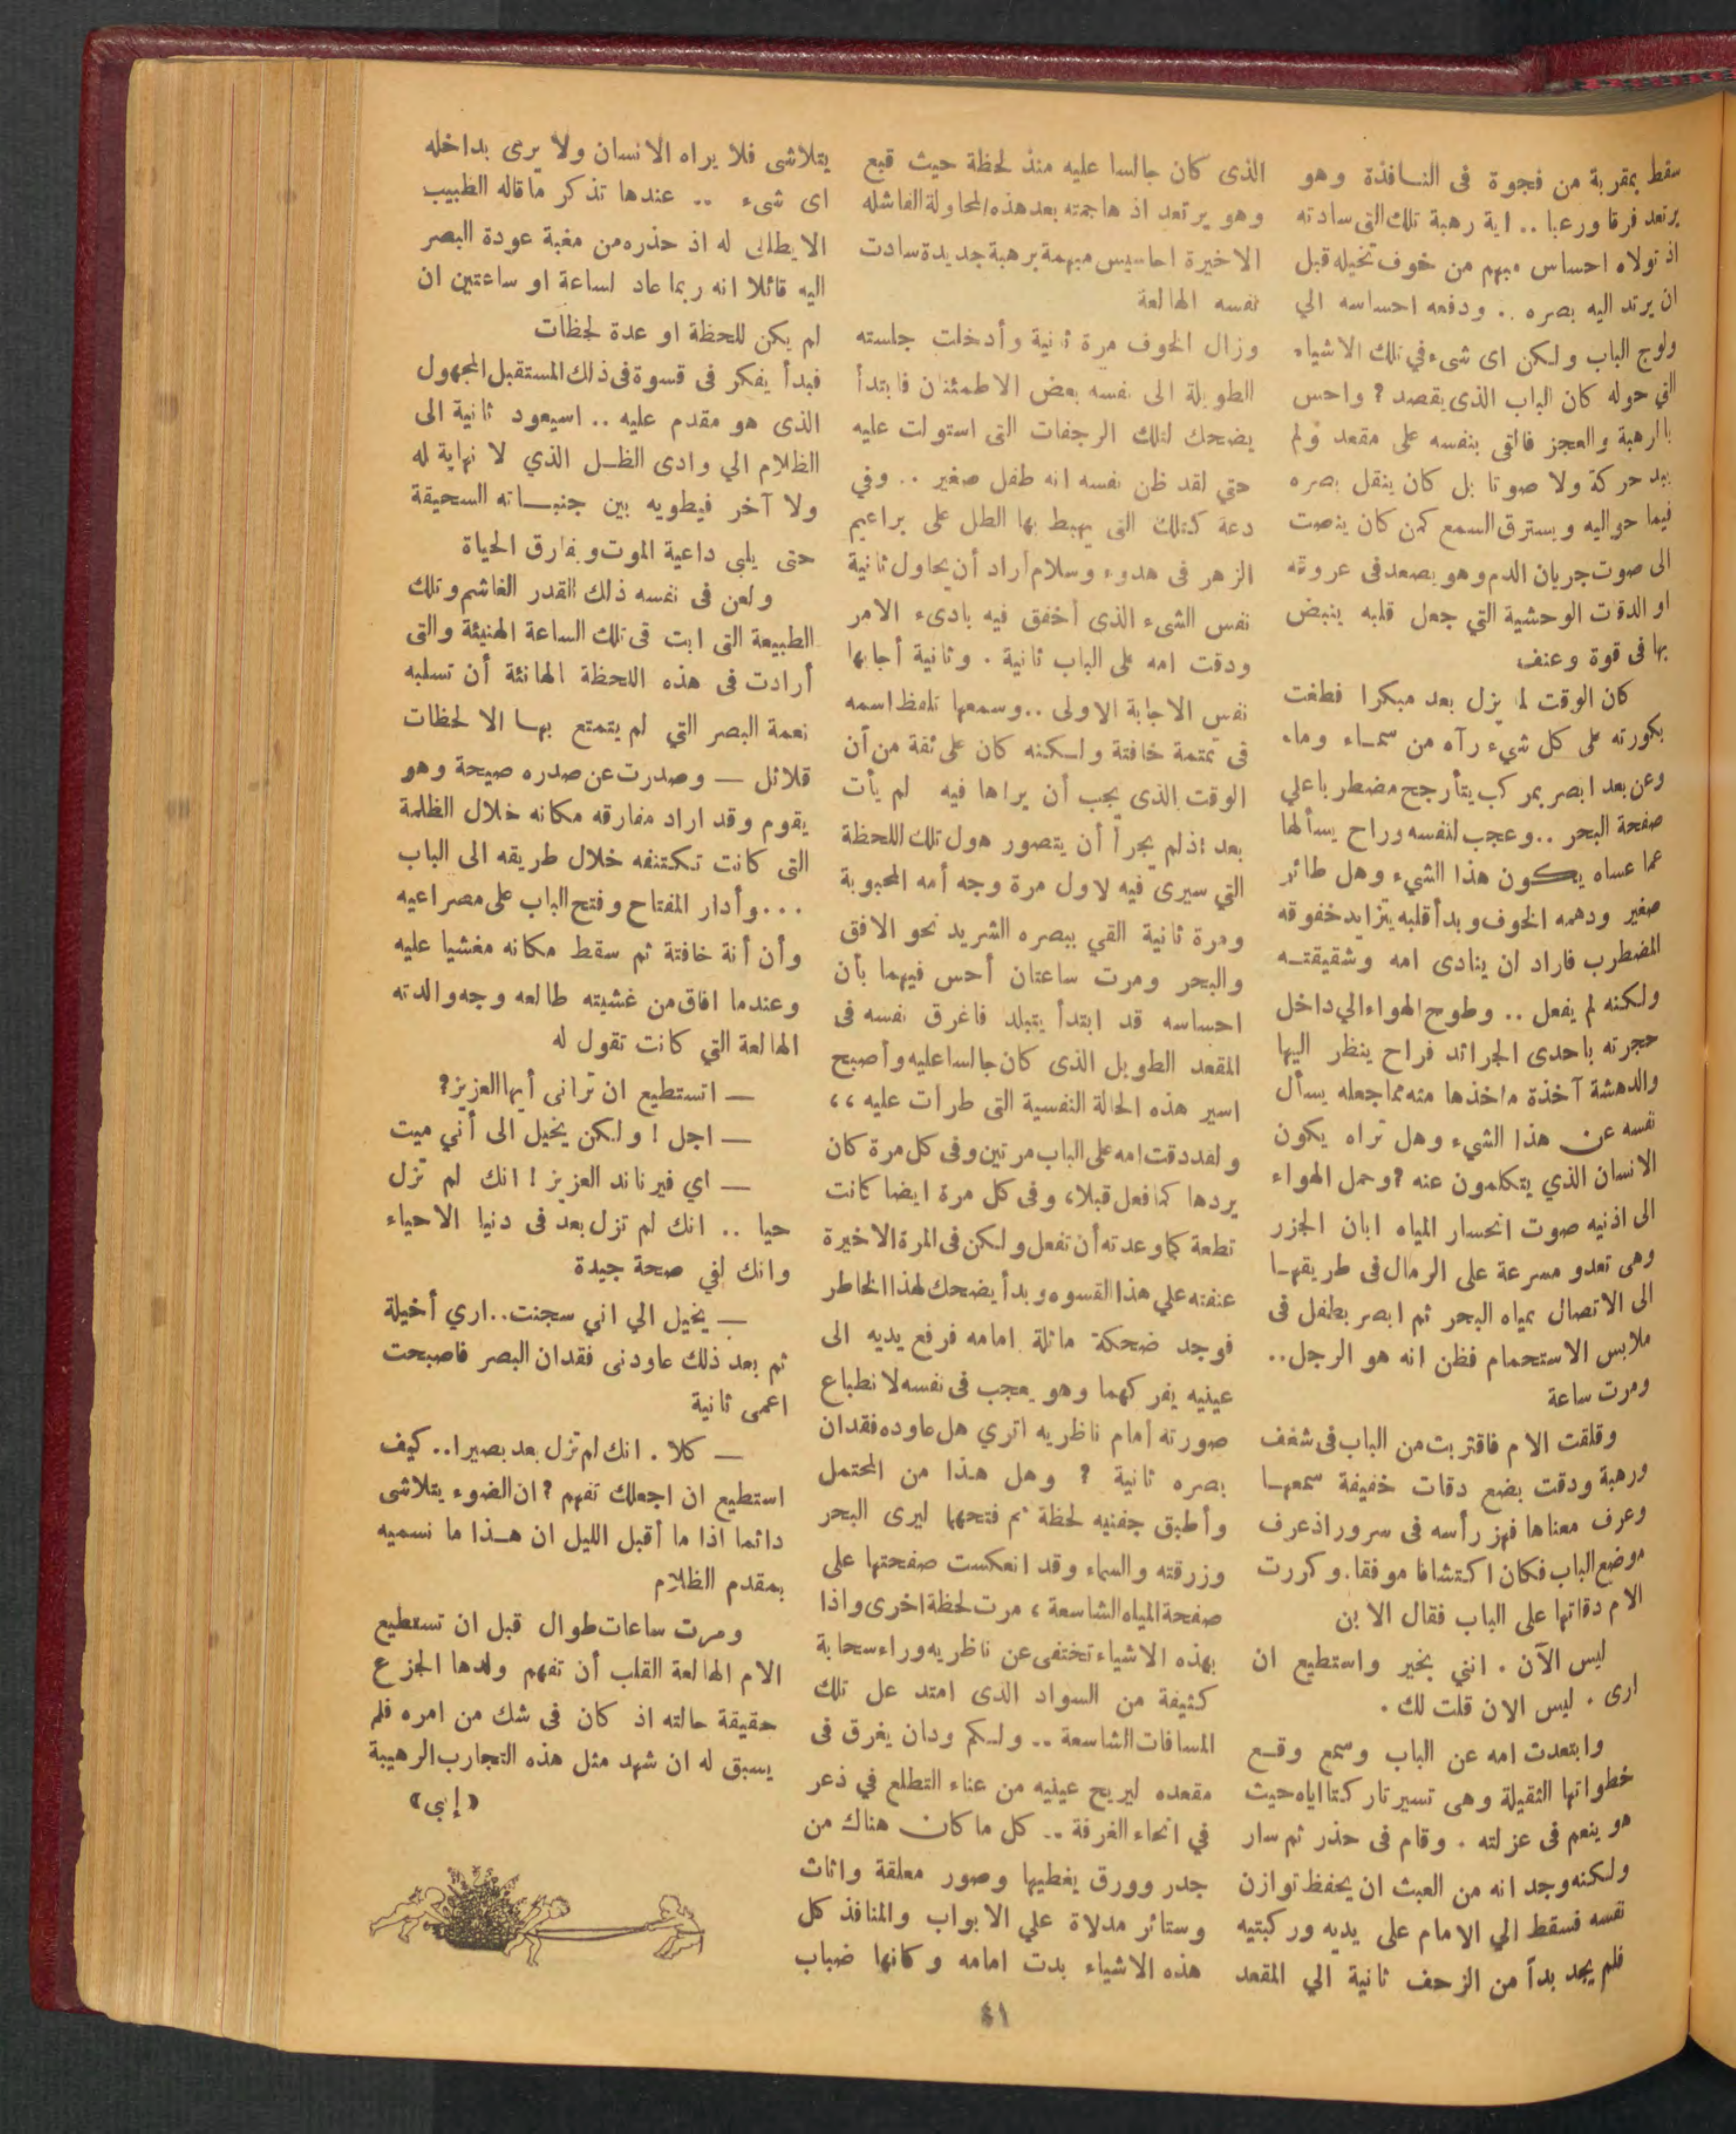 سقط بمقربة من فجوة فى النـافذة وهو
يرتعد فرقا ورعبا .. اية رهبة تلك التى سادته
اذ تولاه احساس مبهم من خوف تخيله قبل
ان يرتد اليه بصره .. ودفعه احساسه الي
ولوج الباب ولكن اى شىء في تلك الاشياء
التي حوله كان الباب الذى يقصد ? واحس
بالرهبة والعجز فالقى بنفسه على مقعد ولم
يبد حركة ولا صوتا بل كان ينقل بصره
فيما حواليه ويسترق السمع كمن كان ينصت
الى صوت جريان الدم وهو يصعد فى عروقه
او الدقات الوحشية التي جعل قلبه ينبض
بها فى قوة وعنف
كان الوقت لما يزل بعد مبكرا فطغت
بكورته على كل شيء رآه من سمـاء وماء
وعن بعد ابصر بمركب يتأرجح مضطربا علي
صفحة البحر .. وعجب لنفسه وراح يسألها
عما عساه يكون هذا الشيء وهل طائر
صغير ودهمه الخوف وبدأ قلبه يتزايد خفوقه
المضطرب فاراد ان ينادى امه وشقيقتـه
ولكنه لم يفعل .. وطوح الهواء الي داخل
حجرته باحدى الجرائد فراح ينظر اليها
والدهشة آخذة ماخذها منه مما جعله يسأل
نفسه عن هذا الشيء وهل تراه يكون
الانسان الذي يتكلمون عنه ? وحمل الهواء
الى اذنيه صوت انحسار المياه ابان الجزر
وهى تعدو مسرعة على الرمال فى طريقهـا
الى الاتصال بمياه البحر ثم ابصر بطفل فى
ملابس الاستحمام فظن انه هو الرجل..
ومرت ساعة
وقلقت الام فاقتربت من الباب فى شغف
ورهبة ودقت بضع دقات خفيفة سمعهـا
وعرف معناها فهز رأسه فى سرور اذ عرف
موضع الباب فكان اكتشافا موفقا. وكررت
الام دقاتها على الباب فقال الابن
ليس الآن . انني بخير واستطيع ان
ارى . ليس الان قلت لك .
وابتعدت امه عن الباب وسمع وقـع
خطواتها الثقيلة وهى تسير تاركتا اياه حيث
هو ينعم فى عزلته . وقام فى حذر ثم سار
ولكنه وجد انه من العبث ان يحفظ توازن
نفسه فسقط الي الامام على يديه وركبتيه
فلم يجد بدآ من الزحف ثانية الي المقعد
الذى كان جالسا عليه منذ لحظة حيث قبع
وهو يرتعد اذ هاجمته بعد هذه المحاولة الفاشله
الاخيرة احاسيس مبهمة برهبة جديدة سادت
نفسه الهالعة
وزال الخوف مرة ثانية وأدخلت جلسته
الطويلة الى نفسه بعض الاطمئنان فابتدأ
يضحك لتلك الرجفات التى استولت عليه
حتي لقد ظن نفسه انه طفل صغير .. وفي
دعة كتلك التى يهبط بها الطل على براعيم
الزهر فى هدوء وسلام أراد أن يحاول ثانية
نفس الشىء الذى أخفق فيه بادىء الامر
ودقت امه على الباب ثانية . وثانية أجابها
نفس الاجابة الاولى .. وسمعها تلفظ اسمه
فى تمتمة خافتة ولـكنه كان على ثقة من أن
الوقت الذى يجب أن يراها فيه لم يأت
بعد اذ لم يجرأ أن يتصور هول تلك اللحظة
التي سيرى فيه لاول مرة وجه أمه المحبوبة
ومرة ثانية القي ببصره الشريد نحو الافق
والبحر ومرت ساعتان أحس فيهما بأن
احساسه قد ابتدأ يتبلد فاغرق نفسه فى
المقعد الطويل الذى كان جالسا عليه وأصبح
اسير هذه الحالة النفسية التى طرأت عليه ،،
ولقد دقت امه على الباب مرتين وفى كل مرة كان
يردها كما فعل قبلا، وفى كل مرة ايضا كانت
تطعة كما وعدته أن تفعل ولكن فى المرة الاخيرة
عنفته علي هذا القسوه وبدأ يضحك لهذا الخاطر
فوجد ضحكة ماثلة امامه فرفع يديه الى
عينيه يفركهما وهو يعجب فى نفسه لانطباع
صورته أمام ناظريه اتري هل عاوده فقدان
بصره ثانية ? وهل هذا من المحتمل
وأطبق جفنيه لحظة ثم فتحهما ليرى البحر
وزرقته والسماء وقد انعكست صفحتها على
صفحة المياه الشاسعة ، مرت لحظة اخرى واذا
بهذه الاشياء تختفى عن ناظريه وراء سحابة
كثيفة من السواد الذى امتد عل تلك
المسافات الشاسعة .. ولـكم ودان يغرق فى
مقعده ليريح عينيه من عناء التطلع في ذعر
في انحاء الغرفة .. كل ما كان هناك من
جدر وورق يغطيها وصور معلقة واثاث
وستائر مدلاة علي الابواب والمنافذ كل
هذه الاشياء بدت امامه وكانها ضباب
يتلاشى فلا يراه الانسان ولا يرى بداخله
اى شىء .. عندها تذكر ما قاله الطبيب
الايطالى له اذ حذره من مغبة عودة البصر
اليه قائلا انه ربما عاد لساعة او ساعتين ان
لم يكن للحظة او عدة لحظات
فبدأ يفكر فى قسوة فى ذلك المستقبل المجهول
الذى هو مقدم عليه .. اسيعود ثانية الى
الظلام الي وادى الظـل الذي لا نهاية له
ولا آخر فيطويه بين جنبـاته السحيقة
حتى يلبى داعية الموت ويفارق الحياة
ولعن فى نفسه ذلك القدر الغاشم وتلك
الطبيعة التى ابت فى تلك الساعة الهنيئة والتى
أرادت فى هذه اللحظة الهانئة أن تسلبه
نعمة البصر التي لم يتمتع بهـا الا لحظات
قلائل — وصدرت عن صدره صيحة وهو
يقوم وقد اراد مفارقه مكانه خلال الظلمة
التى كانت تكتنفه خلال طريقه الى الباب
... وأدار المفتاح وفتح الباب على مصراعيه
وأن أنة خافتة ثم سقط مكانه مغشيا عليه
وعندما افاق من غشيته طالعه وجه والدته
الهالعة التي كانت تقول له
— اتستطيع ان ترانى أيها العزيز?
— اجل ! ولكن يخيل الى أني ميت
— اي فيرناند العزيز ! انك لم تزل
حيا .. انك لم تزل بعد فى دنيا الاحياء
وانك لفي صحة جيدة
— يخيل الي اني سجنت.. اري أخيلة
ثم بعد ذلك عاودنى فقدان البصر فاصبحت
اعمى ثانية
— كلا . انك لم تزل بعد بصيرا.. كيف
استطيع ان اجعلك تفهم ? ان الضوء يتلاشى
دائما اذا ما أقبل الليل ان هـذا ما نسميه
بمقدم الظلام
ومرت ساعات طوال قبل ان تستطيع
الام الهالعة القلب أن تفهم ولدها الجزع
حقيقة حالته اذ كان فى شك من امره فلم
يسبق له ان شهد مثل هذه التجارب الرهيبة
«إبي»
٤١